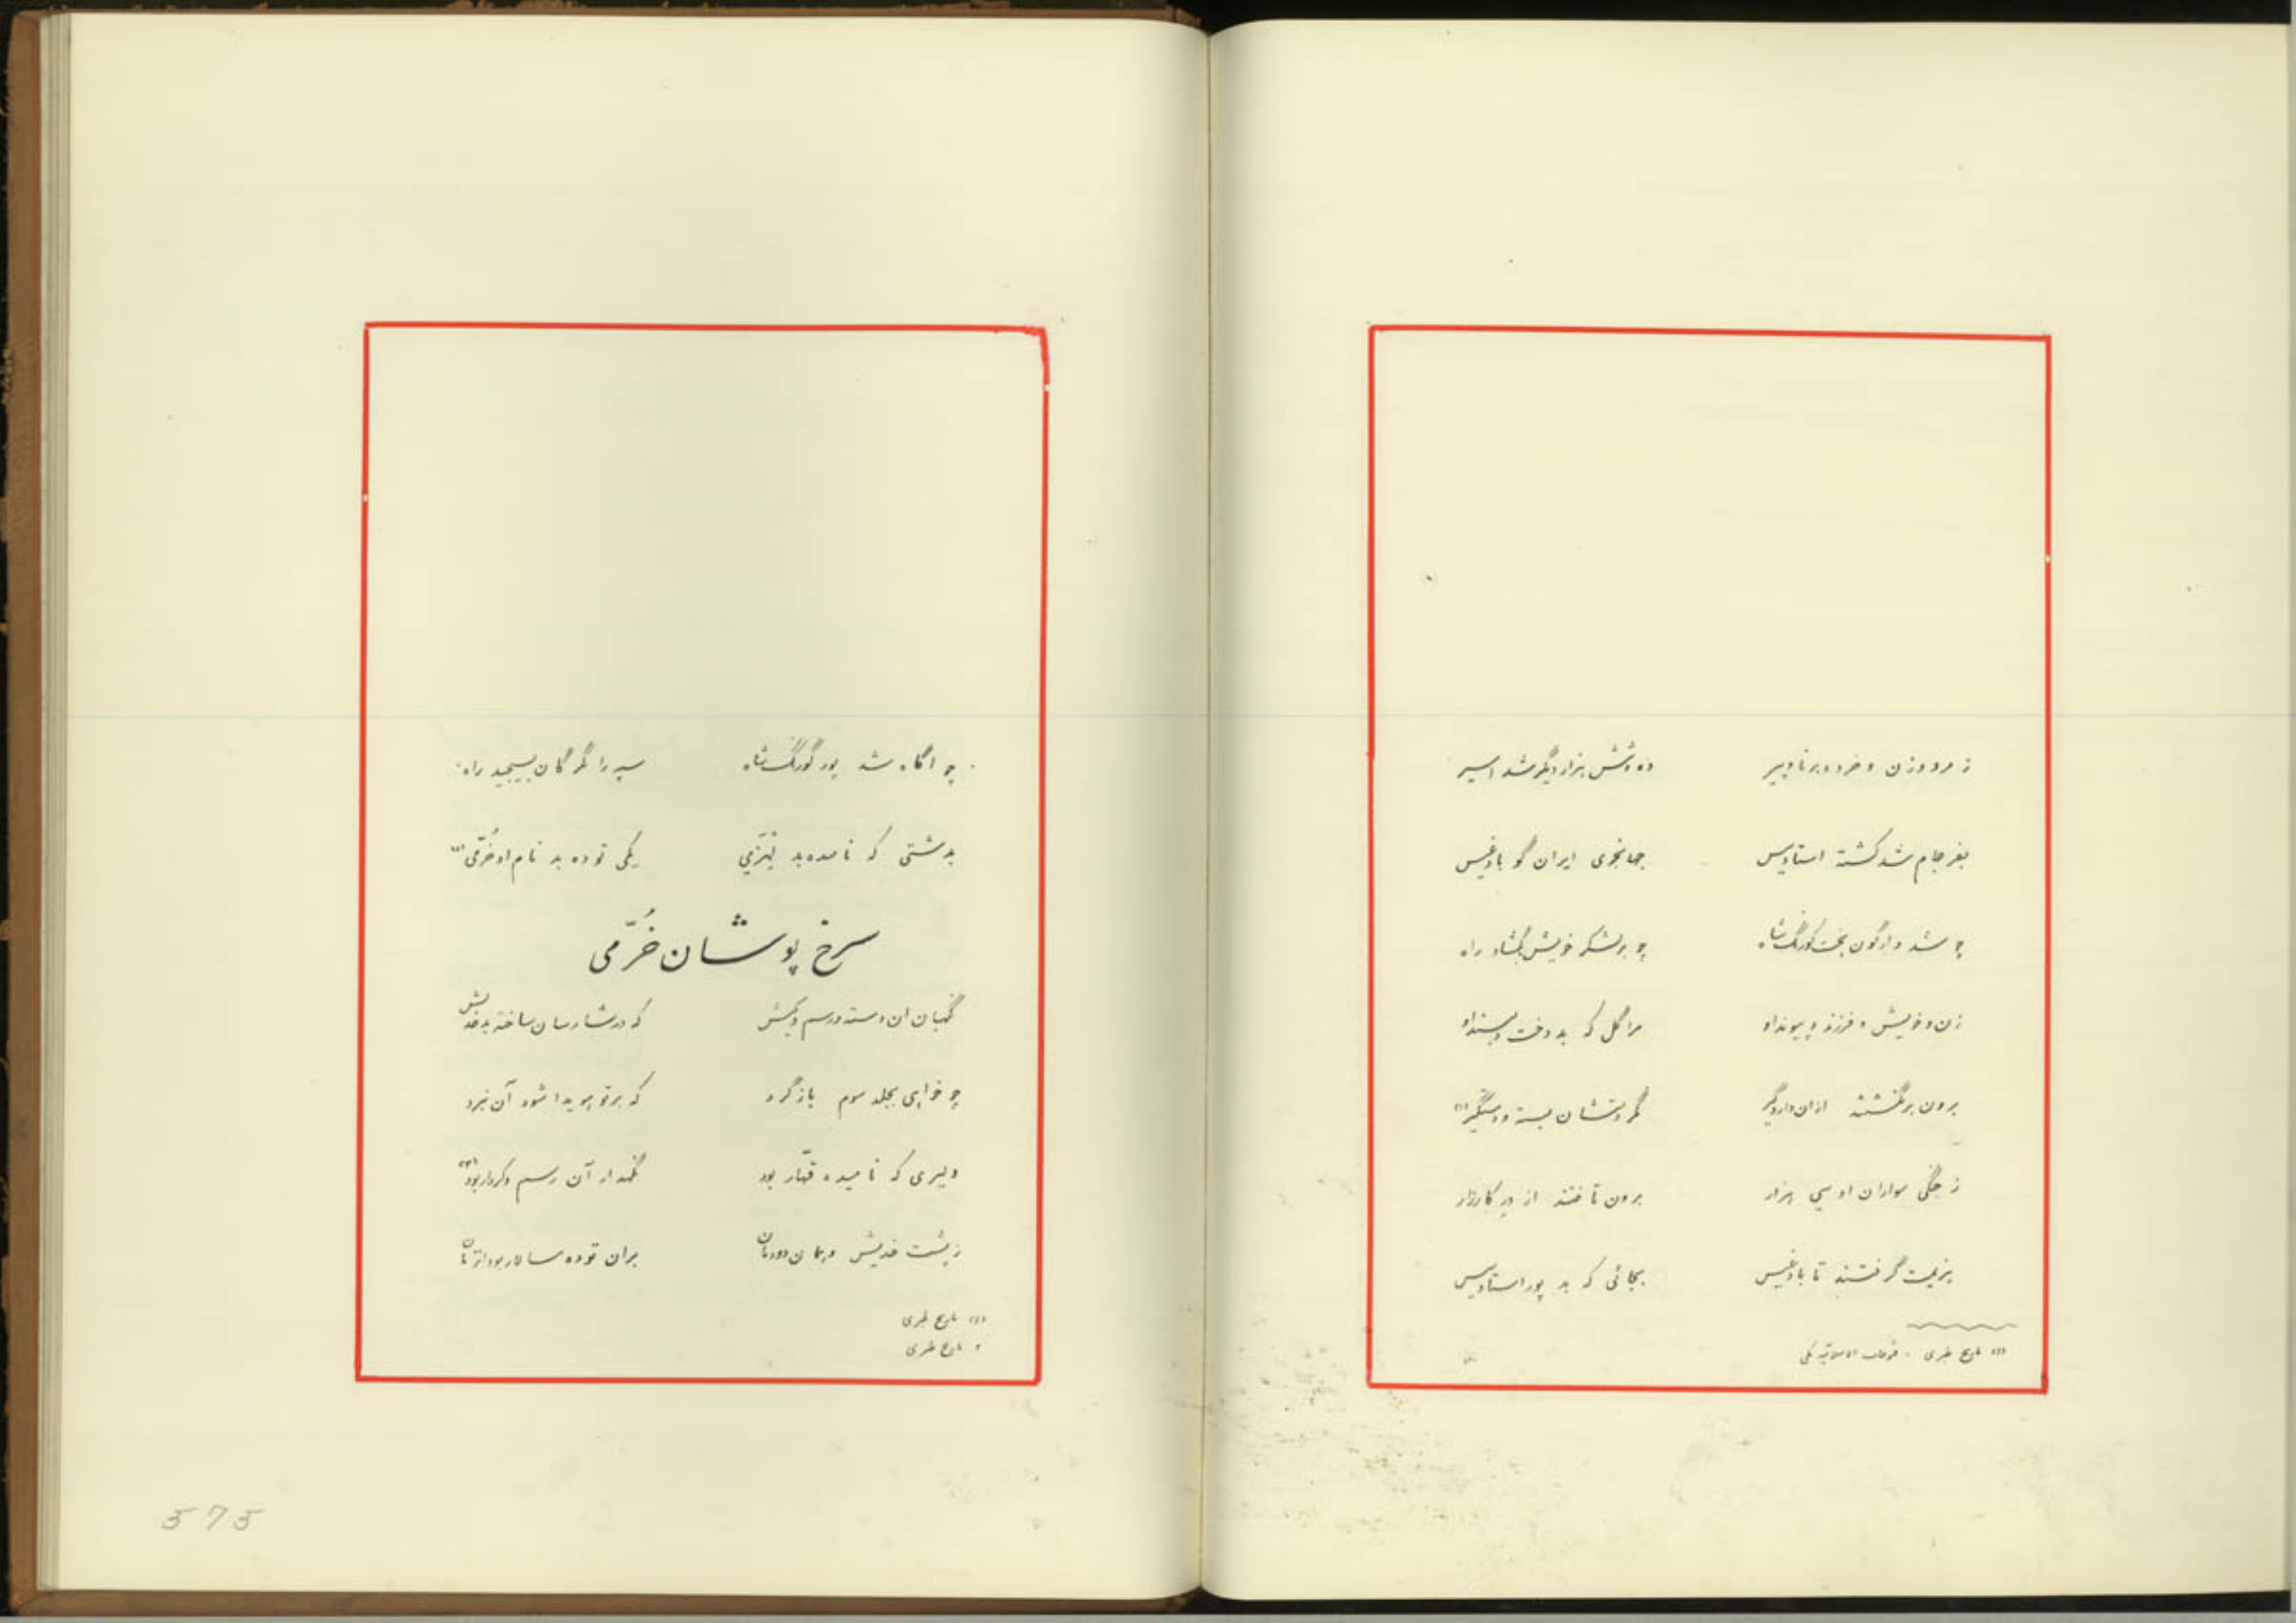 ز مرد و زن و خرد و برنا و پیر ده و شش هزار دیگر شد اسیر
بفرجام شد کشته استادسیس جهانجوی ایران گو بادغیس
چو شد واژگون بخت کورنگ شاه چو بر لشکر خویش بگشاد راه
زن و خویش و فرزند و پیوند او مرا گل که بد دخت
برون برنگشتند ازان داروگیر مگر دستشان بسته و دستگیر (۱)
ز جنگی سواران او سی هزار برون تاختند از در کارزار
هزیمت گرفتند تا بادغیس بجائی که بد پور استادسیس
(۱) تاریخ طبری
چو آگاه شد پور گورنگ شاه سپه را گرگان بسیجید راه
بدشتی که نامیده بد یکی توده بد نام او خرّمی (۱)
سرخ پوشان خُرّمی
نگهبان ان دسته در رسم و کیش که در شارسان ساخته بد
چو خواهی بجلد سوم بازگرد که بر تو هویدا شود آن نبرد
دلیری که نامیده قهّار بود نگهدار آن رسم و کردار بود (۲)
ز پشت خدیش و همان دودمان بران توده سالار بود
(۱) تاریخ طبری
۲ تاریخ طبری
575